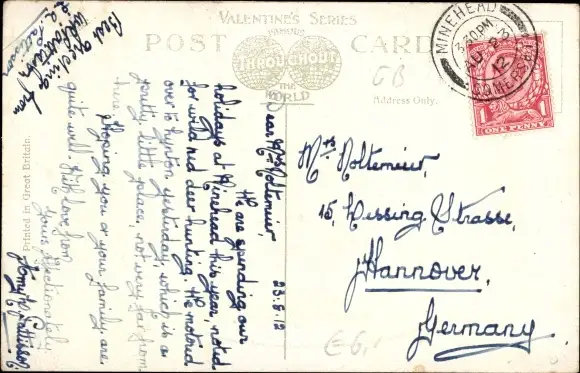 VALENTINE'S SERIES
FAMOUS
THROUGHOUT
THE
WORLD
POST CARD
Address Only.
Printed in Great Britain.
MINEHEAD
3.30PM
AU 23
12
SOMERSET
ONE PENNY
GB
Mrs Noltemeier,
15, Lessing Strasse,
Hannover,
Germany.
E 6,
23.8.12
Dear Mrs Noltemeier,
We are spending our
holidays at Minehead this year, noted
for wild red deer hunting. We motored
over to Lynton, yesterday, which is a
pretty, little place, not very far from
here.
Hoping you & your family are
quite well. With love from
Yours affectionately
Best greetings
from